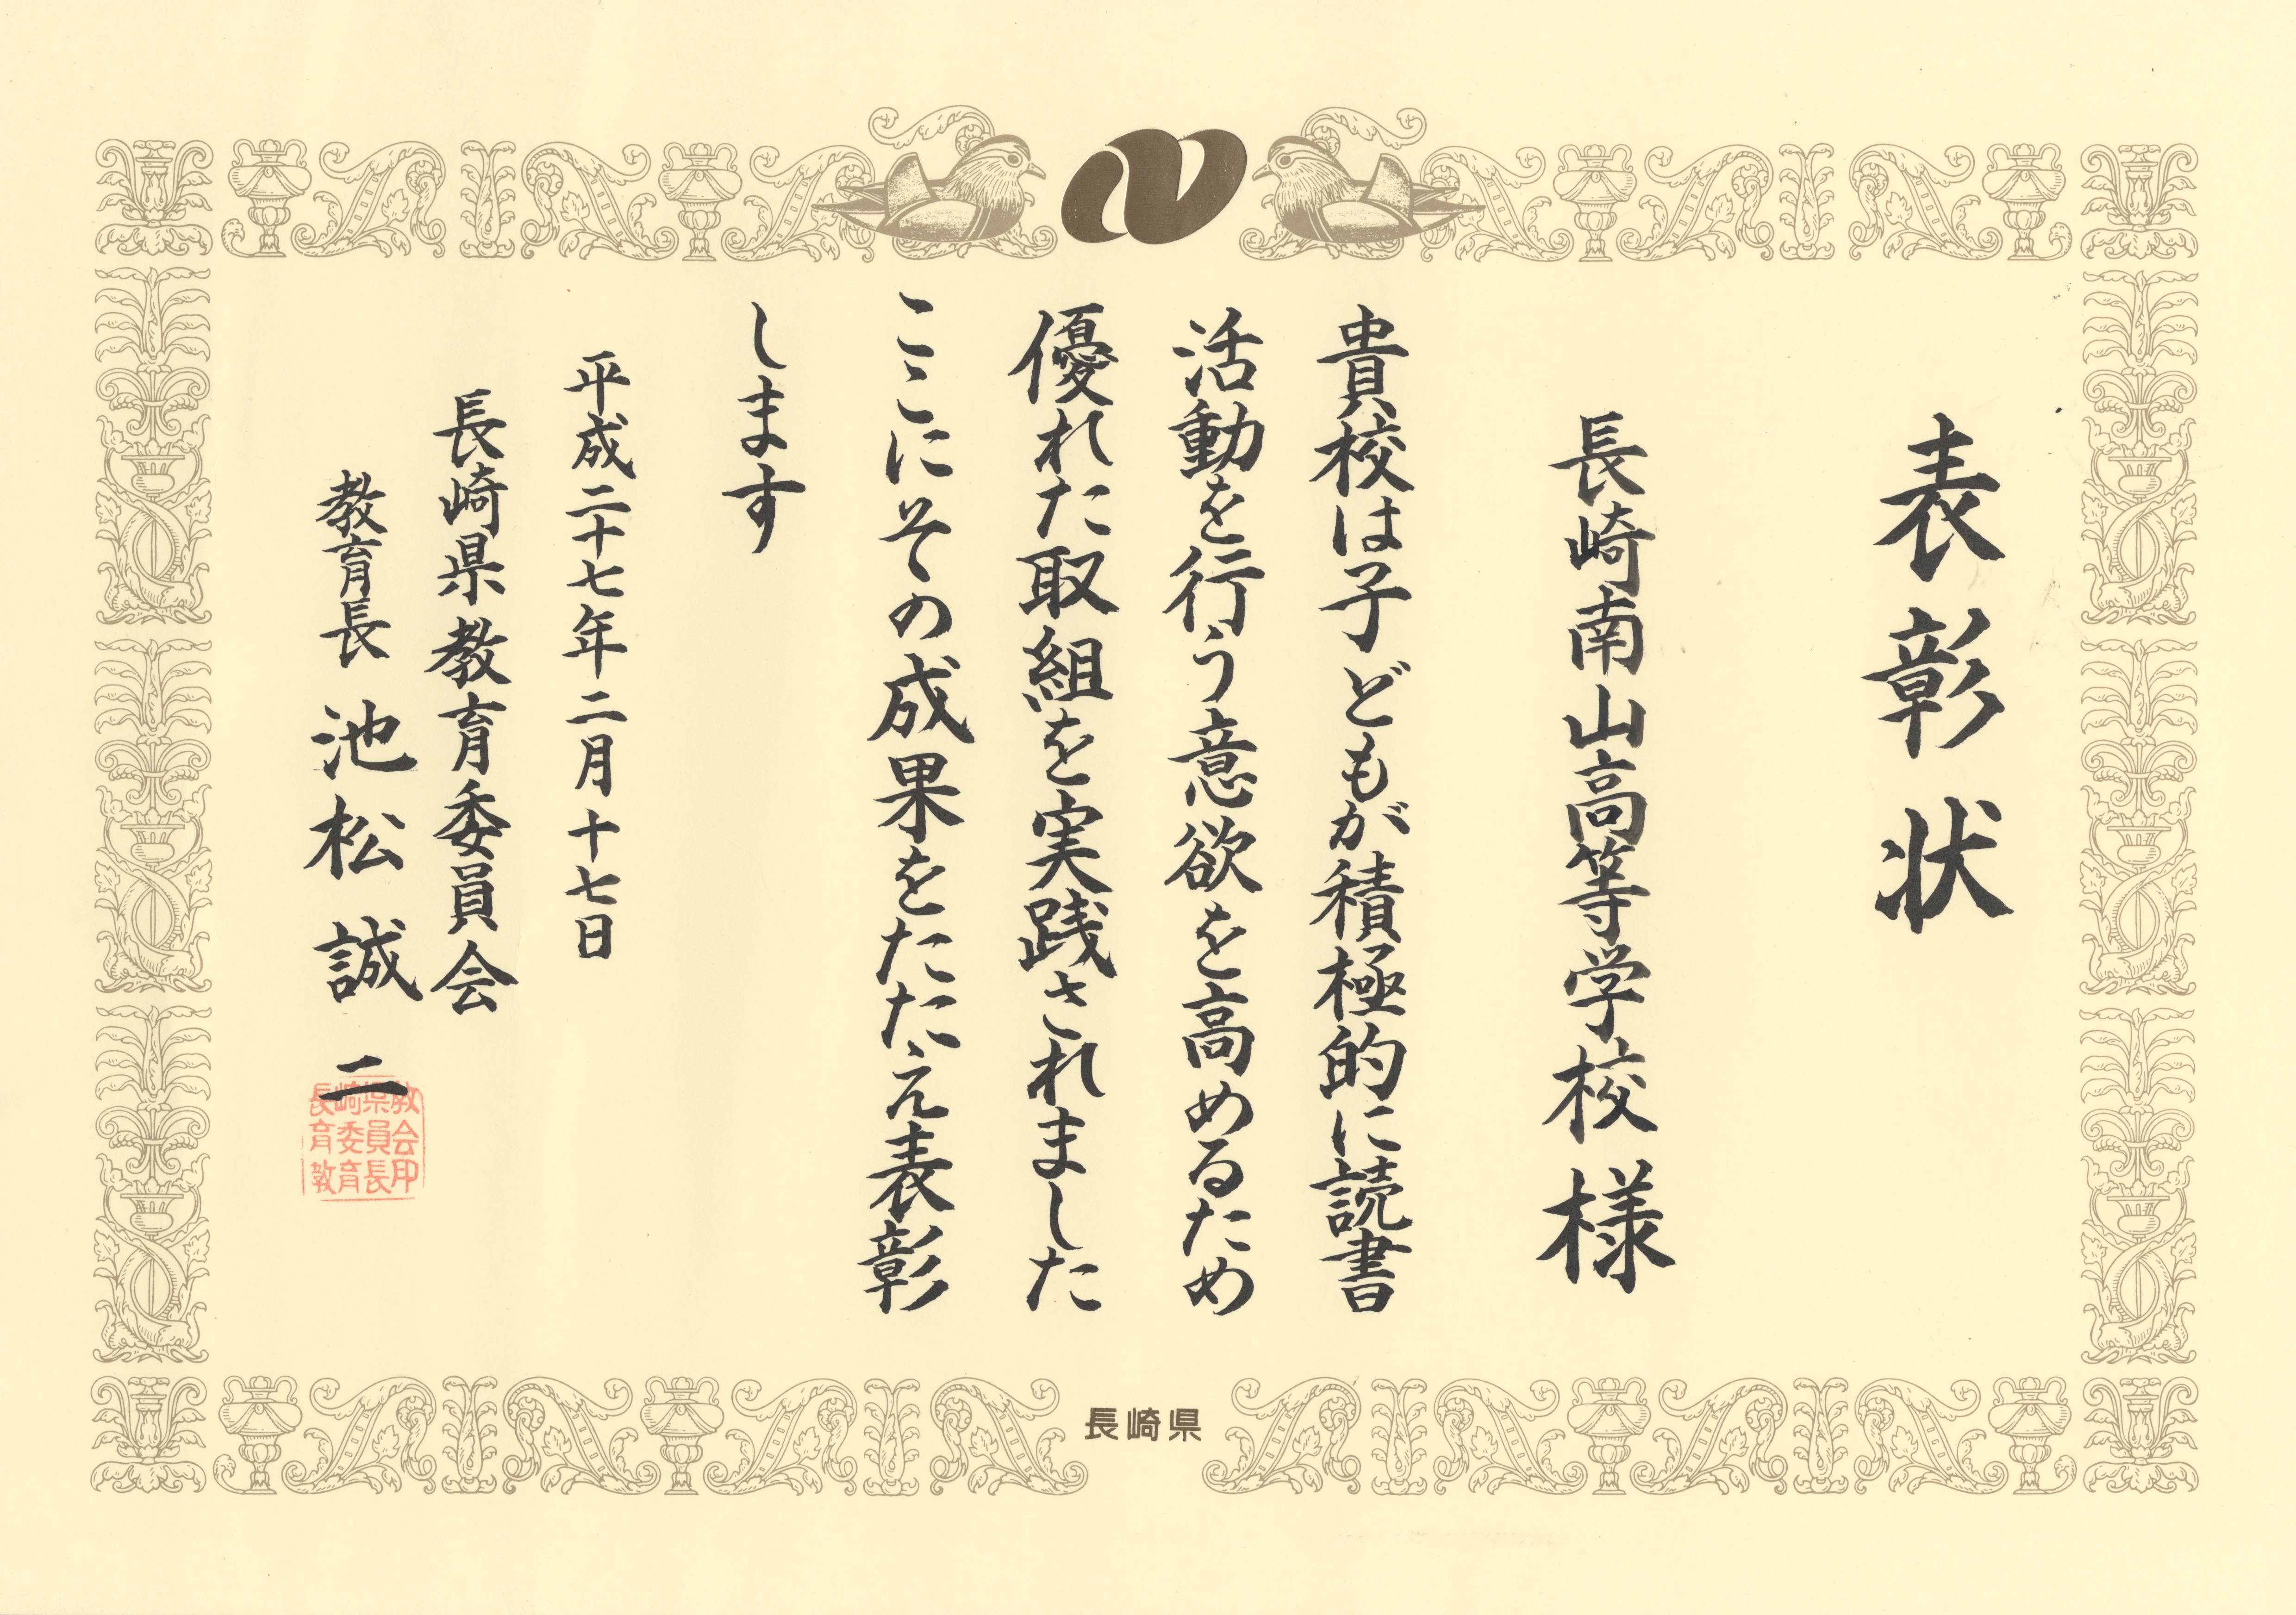 表彰状
長崎南山高等学校様
貴校は子どもが積極的に読書
活動を行う意欲を高めるため
優れた取組を実践されました
ここにその成果をたたえ表彰
します
平成二十七年二月十七日
長崎県教育委員会
教育長 池松誠二
長崎県教
育委員会
教育長印
長崎県